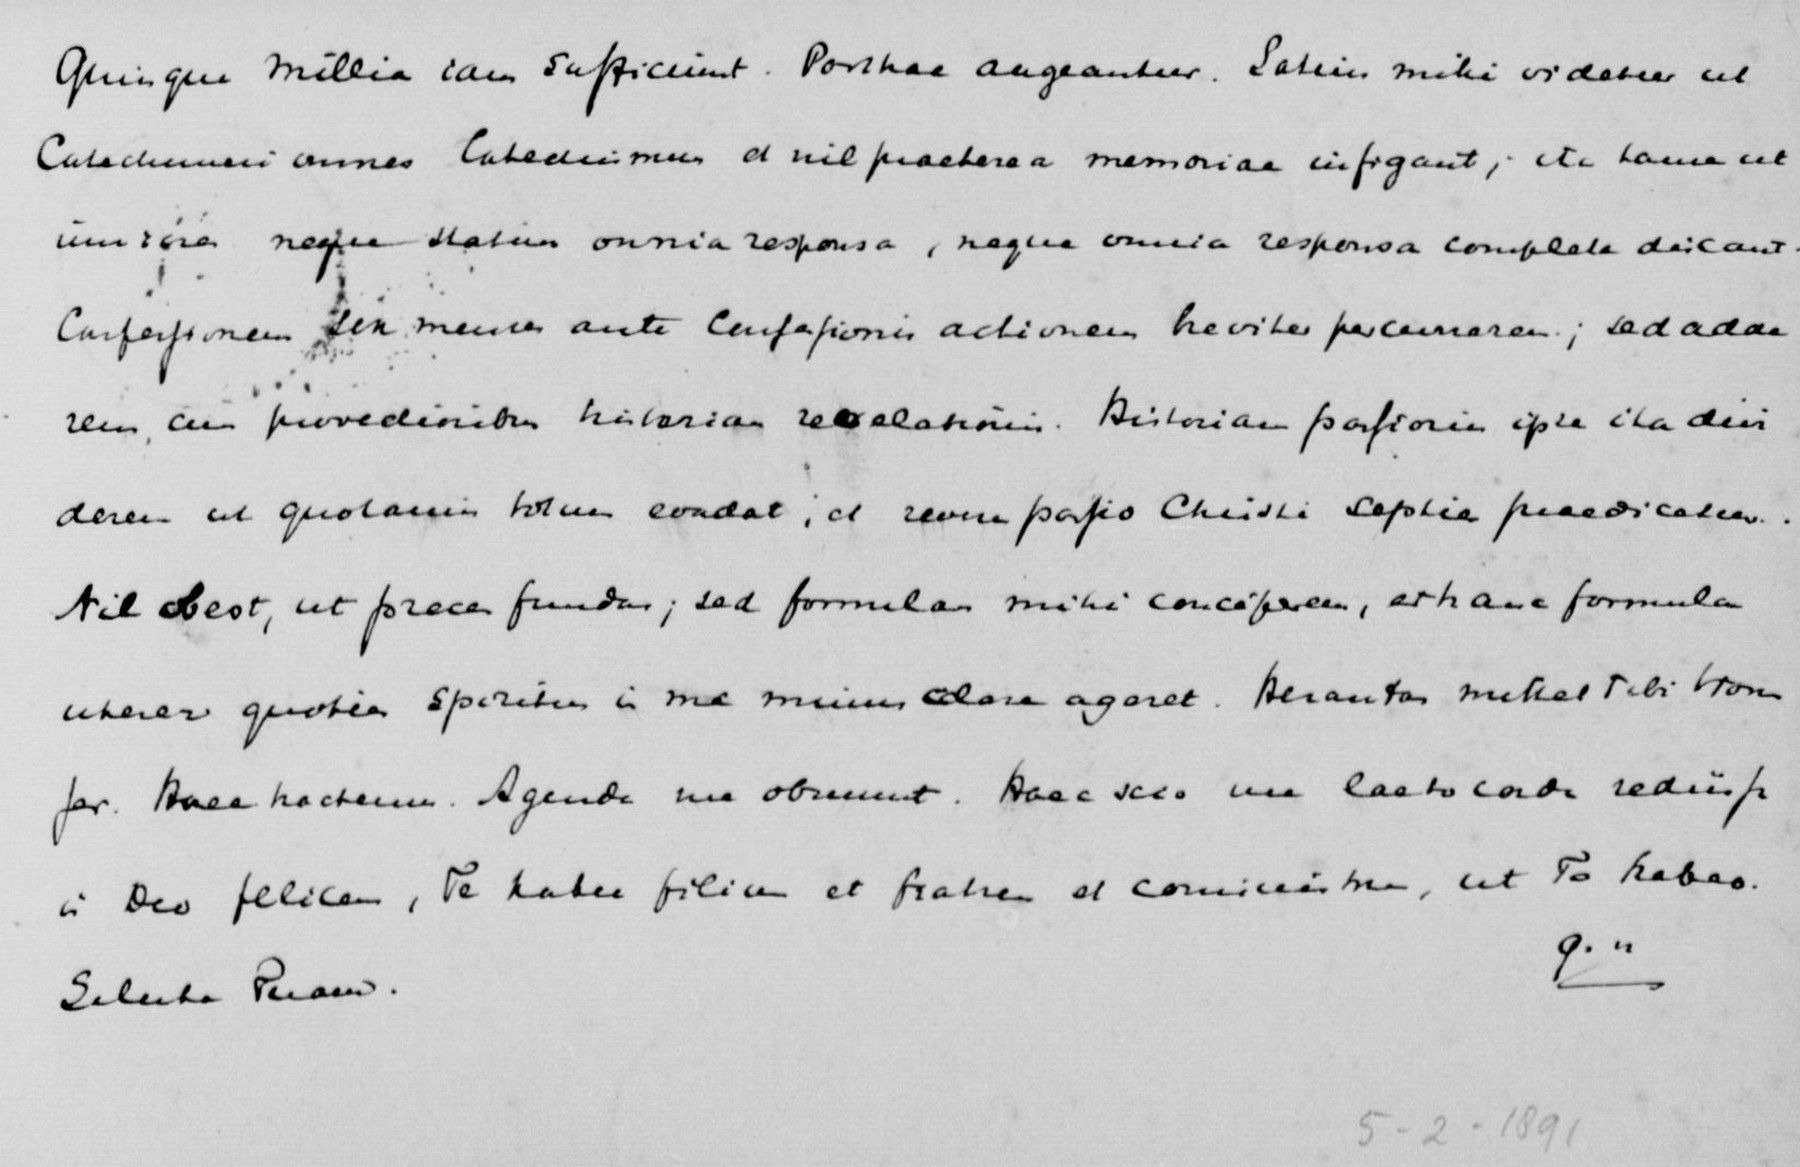 Quinque millia iam sufficiunt. Posthac augeantur. Satius mihi videtur ut
Catechumeni omnes Catechismum et nil praeterea memoriae infigant; ita tamen ut
iuniores neque statim omnia responsa, neque omnia responsa completa discant.
Confessionem sex menses ante Confessionis actionem breviter percurrerem; sed adde
rem cum provectioribus historiam revelationis. Historiam passionis ipse ita divi
derem ut quotannis totum evadat; et revera passio Christi saepius praedicatur.
Nil obest, ut preces fundas; sed formulas mihi conciperem, et hanc formula
uterer quoties Spiritus in me minus clare ageret. mittet Tibi
fer. Haec hactenus. Agenda me obruunt. Haec scio me laeto corde
in Deo felicem, Te habe filium et fratrem et comministrum, ut Te habeo.
Saluta Tuam.
5-2-1891